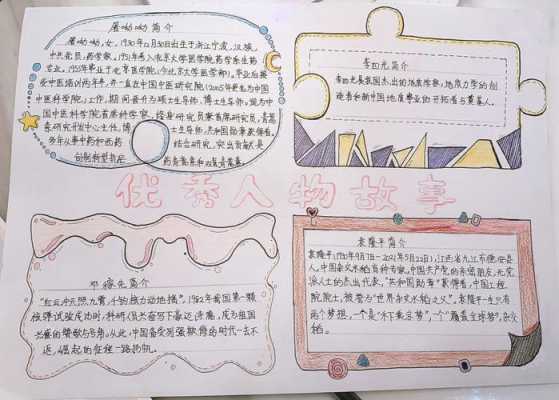 屠呦呦简介
屠呦呦,女,1930年12月30日出生于浙江宁波,汉族,
中共党员,药学家,1951年考入北京大学医学院药学系生药
专业。1955年毕业于北京医学院(今北京大学医学部)。毕业后接
受中医培训两年半,并一直在中国中医研究院(2005年更名为中国
中医科学院)工作,期间晋升为硕士生导师、博士生导师。现为中
国中医科学院首席科学家,终身研究员兼首席研究员,青蒿
素研究开发中心主任,博士生导师,共和国勋章获得者。
多年从事中药和西药结合研究,突出贡献是
创制新型抗疟药青蒿素和双氢青蒿素。
李四光简介
李四光是我国杰出的地质学家,地质力学的创
造者和新中国地质事业的开拓者与奠基人。
优秀人物故事
邓稼先简介
"红云冲天照九霄,千钧核力动地摇"。1982年我国第一颗
核弹试验成功时,科研人员
兴盛的荣歌与号角。从此,中国备受列强欺侮的时代一去不
返,崛起的征程一路扬帆。
袁隆平简介
袁隆平(1930年9月7日-2021年5月22日),江西省九江市德安县
人,中国杂交水稻育种专家,中国共产党的亲密朋友,无党
派人士的杰出代表,"共和国勋章"获得者,中国工程
院院士,被誉为"世界杂交水稻之父"。袁隆平一生只有
两个梦想,一个是"禾下乘凉梦",一个"覆盖全球梦"。杂交
稻。